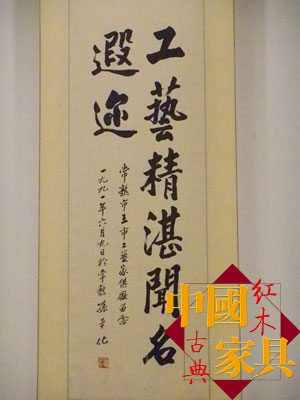 工藝精湛聞名
遐迩
常熟市王市工藝家俱厰留念
一九九一年六月九日於常熟 孫平化
中國
家具
紅木
古典